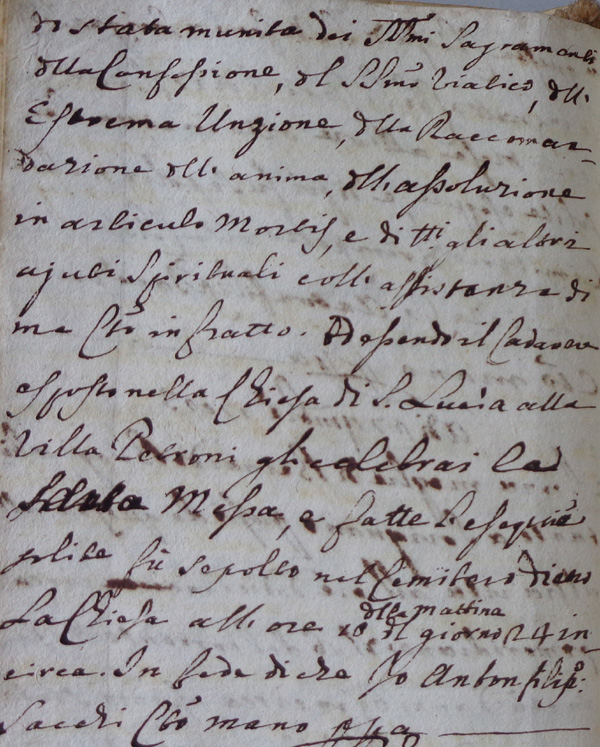 do stata munita dei SSmi Sagramenti
della Confessione, del SSmo Viatico, dell'
Estrema Unzione, della Raccoman-
dazione dell'anima, dell'assoluzione
in articulo Mortis, e di tti gli altri
ajuti Spirituali coll'assistenza di
me Cto infratto. Ed essendo il Cadavere
esposto nella Chiesa di S. Lucia alla
Villa Petroni gli celebrai la
Messa, e fatte l'esequie
solite fù sepolto nel Cemitero dietro
La Chiesa all'ore 10 della mattina del giorno 24 in
circa. In fede di che Io Anton filip:
Sacchi Cto mano ppa